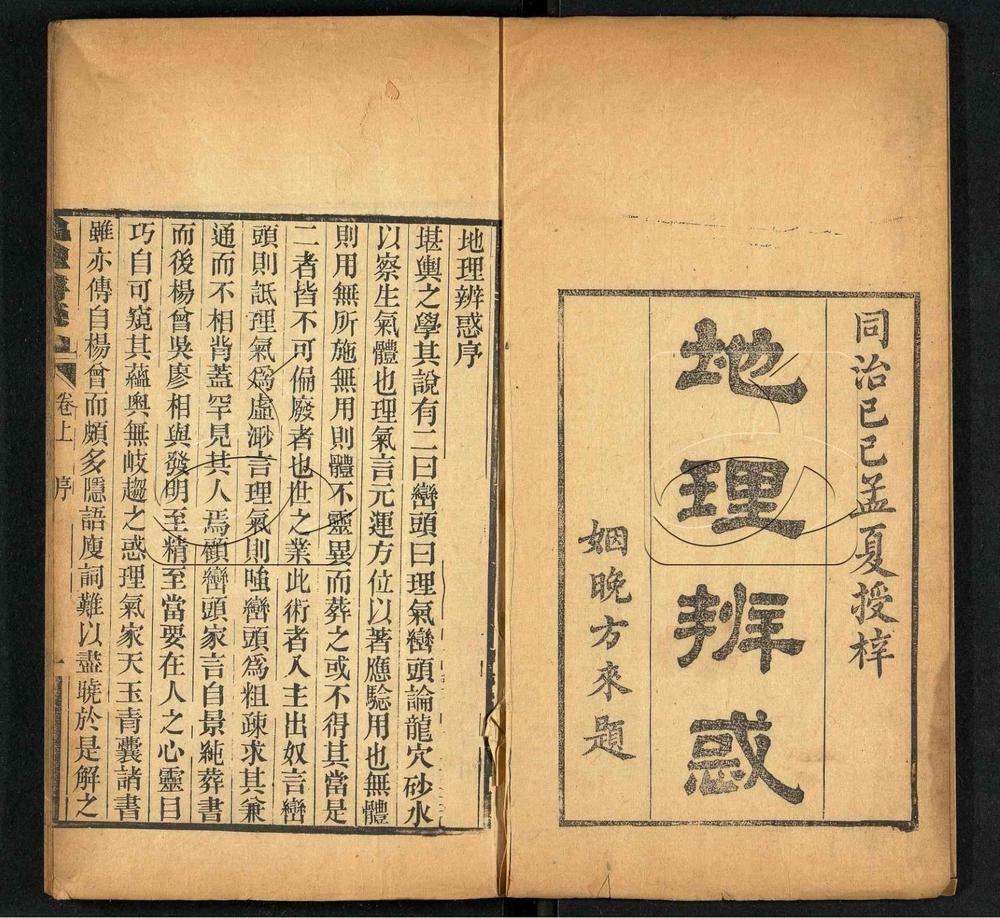 同治己巳孟夏授梓
地理辨惑
姻晚方來題
地理辨惑序
堪輿之學其說有二曰巒頭曰理氣巒頭論龍穴砂水
以察生氣體也理氣言元運方位以著應驗用也無體
則用無所施無用則體不靈異而葬之或不得其當是
二者皆不可偏廢者也世之業此術者入主出奴言巒
頭則詆理氣爲虛渺言理氣則嗤巒頭爲粗疎求其兼
通而不相背蓋罕見其人焉顧巒頭家言自景純葬書
而後楊曾吳廖相與發明至精至當要在人之心靈目
巧自可窺其蘊奧無岐趨之惑理氣家天玉青囊諸書
雖亦傳自楊曾而頗多隱語廋詞難以盡曉於是解之
卷上
序
一